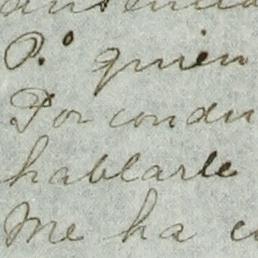 P.º quien
Por condu
hablarle
Me ha